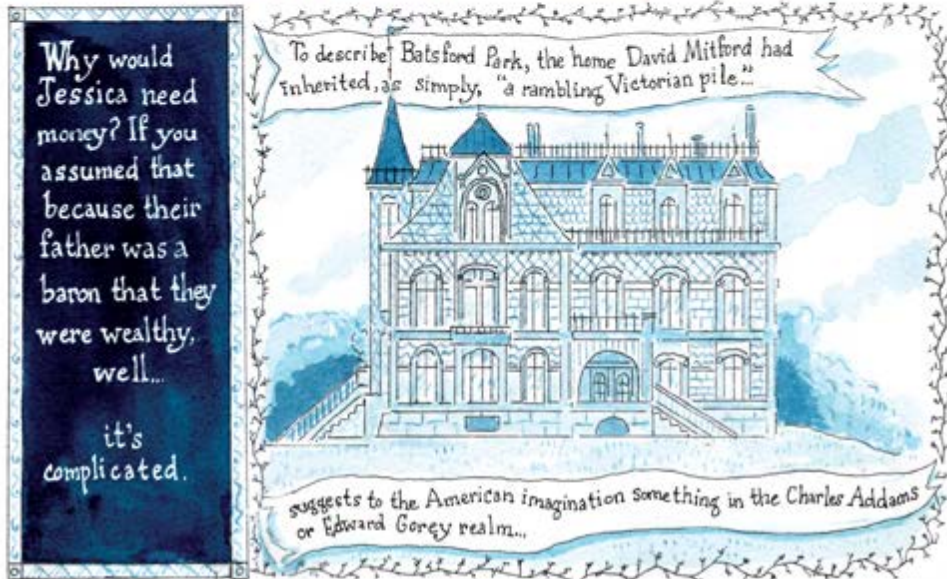 Why would
Jessica need
money? If you
assumed that
because their
father was a
baron that they
were wealthy,
well...
it's
complicated.
To describe Batsford Park, the home David Mitford had
inherited, as simply, "a rambling Victorian pile"...
suggests to the American imagination something in the Charles Addams
or Edward Gorey realm...